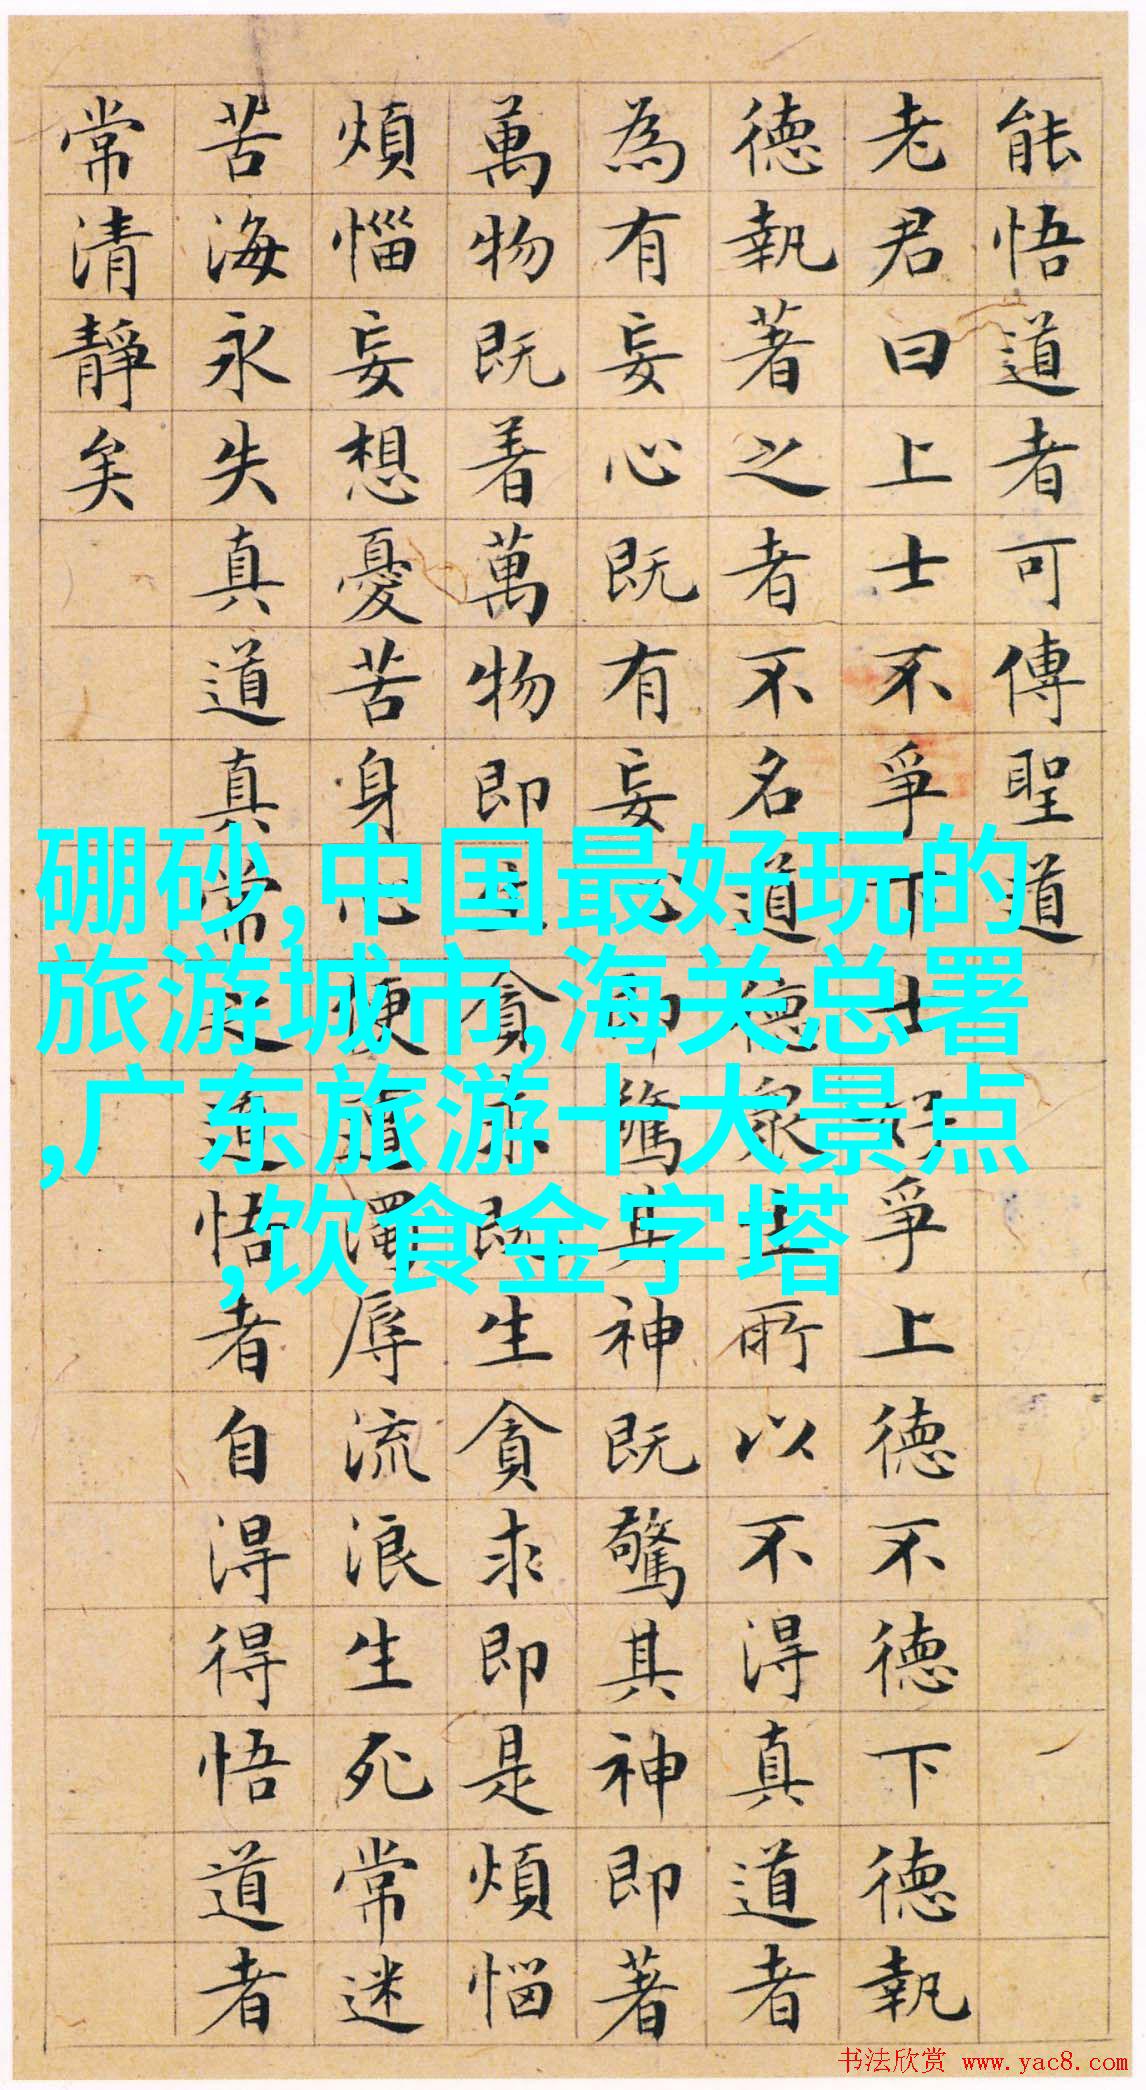 能悟道者可傳聖道
老君曰上士不爭下士好爭上德不德下德執
德執著之者不名道德衆生所以不得真道者
為有妄心既有妄心即驚其神既驚其神即著
萬物既着萬物即生貪求既生貪求即是煩惱
煩惱妄想憂苦身心便遭濁辱流浪生死常迷
苦海永失真道真常之道悟者自得得悟道者
常清靜矣
硼砂,中国最好玩的
旅游城市,海关总署
,广东旅游十大景点
,饮食金字塔
书法欣赏 www.yac8.com